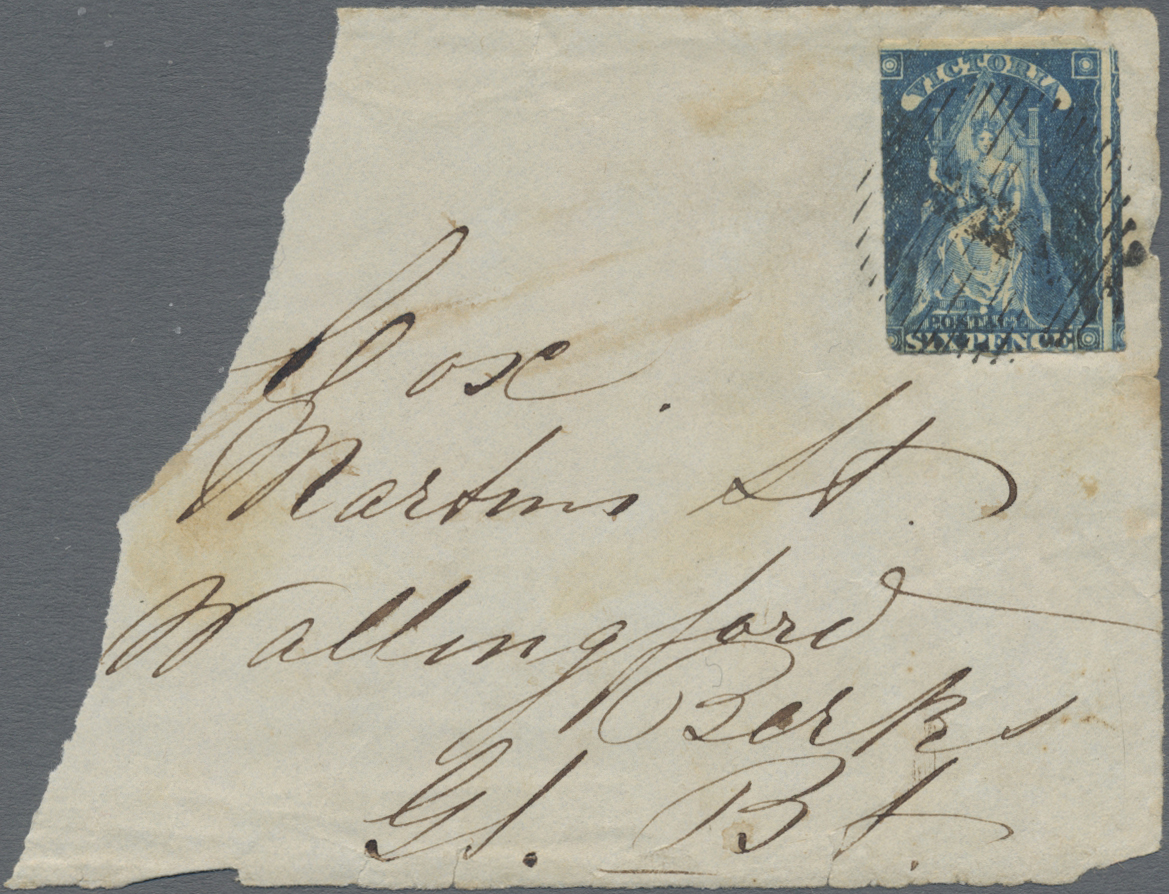 VICTORIA
POSTAGE
SIX PENCE
Cox.
Martins St.
Wallingford
Berks
Gt. Bt.